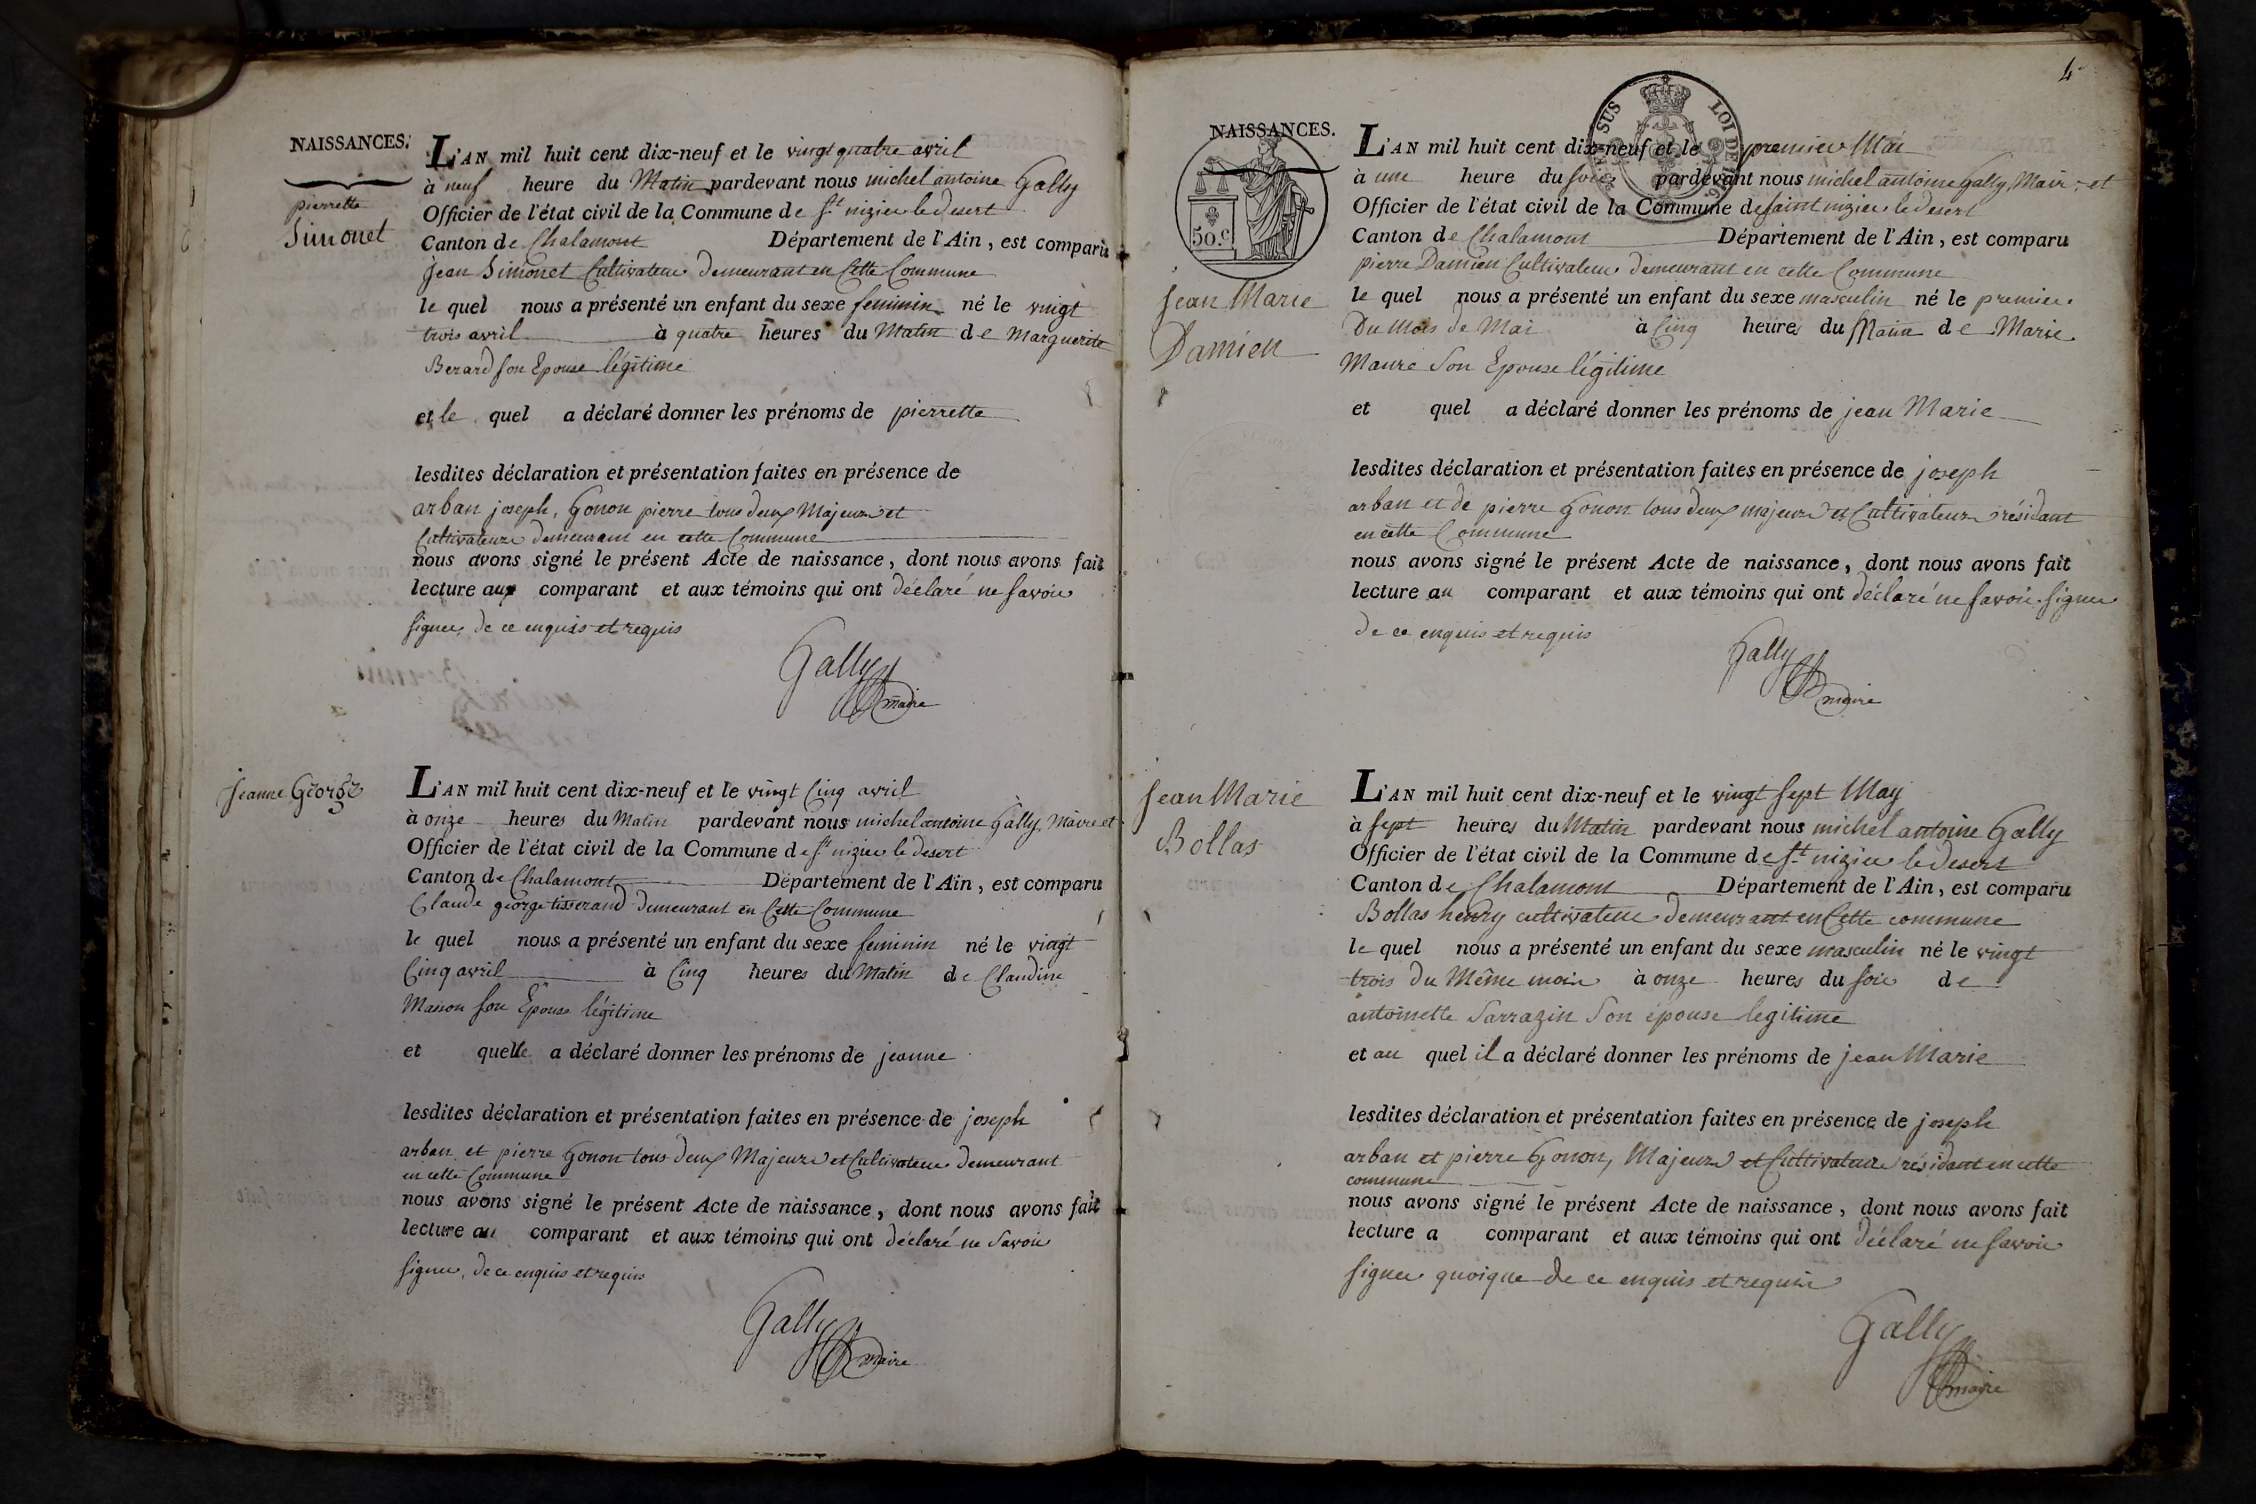 NAISSANCES.
pierrette
Simonet
L'AN mil huit cent dix-neuf et le vingt quatre avril
à neuf heure du Matin pardevant nous michel antoine Gally
Officier de l'état civil de la Commune de St nizier le desert
Canton de Chalamont Département de l'Ain, est comparu
jean Simonet Cultivateur demeurant en Cette Commune
le quel nous a présenté un enfant du sexe feminin né le vingt
trois avril à quatre heures du Matin de Marguerite
Berard son Epouse légitime
et le quel a déclaré donner les prénoms de pierrette
lesdites déclaration et présentation faites en présence de
arban joseph, Gonon pierre tous deux Majeurs et
Cultivateurs demeurant en cette Commune
nous avons signé le présent Acte de naissance, dont nous avons fait
lecture aux comparant et aux témoins qui ont déclaré ne savoir
signer, de ce enquis et requis
Gally
maire
jeanne George
L'AN mil huit cent dix-neuf et le vingt Cinq avril
à onze heures du Matin pardevant nous michel antoine Gally, Maire et
Officier de l'état civil de la Commune de St nizier le desert
Canton de Chalamont Département de l'Ain, est comparu
Claude george tisserand demeurant en Cette Commune
le quel nous a présenté un enfant du sexe feminin né le vingt
Cinq avril à Cinq heures du Matin de Claudine
Masson son Epouse légitime
et quelle a déclaré donner les prénoms de jeanne
lesdites déclaration et présentation faites en présence de joseph
arban et pierre Gonon tous deux Majeurs et Cultivateurs demeurant
en cette Commune
nous avons signé le présent Acte de naissance, dont nous avons fait
lecture au comparant et aux témoins qui ont déclaré ne savoir
signer, de ce enquis et requis
Gally
maire
4
NAISSANCES.
50.c
SUS
LOI DE
jean Marie
Damien
L'AN mil huit cent dix-neuf et le premier Mai
à une heure du soir pardevant nous michel antoine Gally, Maire et
Officier de l'état civil de la Commune de saint nizier le desert
Canton de Chalamont Département de l'Ain, est comparu
pierre Damien Cultivateur demeurant en cette Commune
le quel nous a présenté un enfant du sexe masculin né le premier
du Mois de Mai à Cinq heures du Matin de Marie
Maure son Epouse légitime
et quel a déclaré donner les prénoms de jean Marie
lesdites déclaration et présentation faites en présence de joseph
arban et de pierre Gonon tous deux majeurs et Cultivateurs résidant
en cette Commune
nous avons signé le présent Acte de naissance, dont nous avons fait
lecture au comparant et aux témoins qui ont déclaré ne savoir signer
de ce enquis et requis
Gally
maire
jean Marie
Bollas
L'AN mil huit cent dix-neuf et le vingt sept May
à sept heures du Matin pardevant nous michel antoine Gally
Officier de l'état civil de la Commune de St nizier le desert
Canton de Chalamont Département de l'Ain, est comparu
Bollas henry cultivateur demeurant en Cette commune
le quel nous a présenté un enfant du sexe masculin né le vingt
trois du Même mois à onze heures du soir de
antoinette Sarrazin Son épouse legitime
et au quel il a déclaré donner les prénoms de jean Marie
lesdites déclaration et présentation faites en présence de joseph
arban et pierre Gonon, Majeurs et Cultivateurs résidant en cette
commune
nous avons signé le présent Acte de naissance, dont nous avons fait
lecture a comparant et aux témoins qui ont déclaré ne savoir
signer quoique de ce enquis et requis
Gally
maire